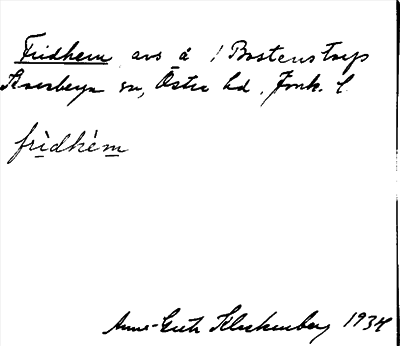 Fridhem avs å Bostenstorp
sn, Östra hd. Jönk. l
frìdhém
Anna-Greta Klockenberg 1934